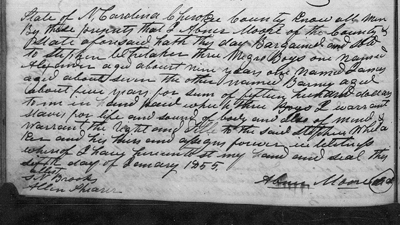 State of N Carolina Cherokee County Know all Men
By these presents that I Abner Moore of the County &
State aforesaid hath this day Bargained and sold
to Stephen Whitaker three Negro Boys one named
aged about nine years one named James
aged about seven the other named Barney aged
about five years for sum of fifteen hundred dollars
to me in hand paid which three Boys I warrant
slaves for life and sound of body and also of mind, &
warrant the right and title to the said Stephen Whita
ker and his heirs and assigns forever in witness
whereof I have hereunto set my hand and seal this
sixth day of January 1855.
Abner Moore
S. N. Brooks
Allen Shearer